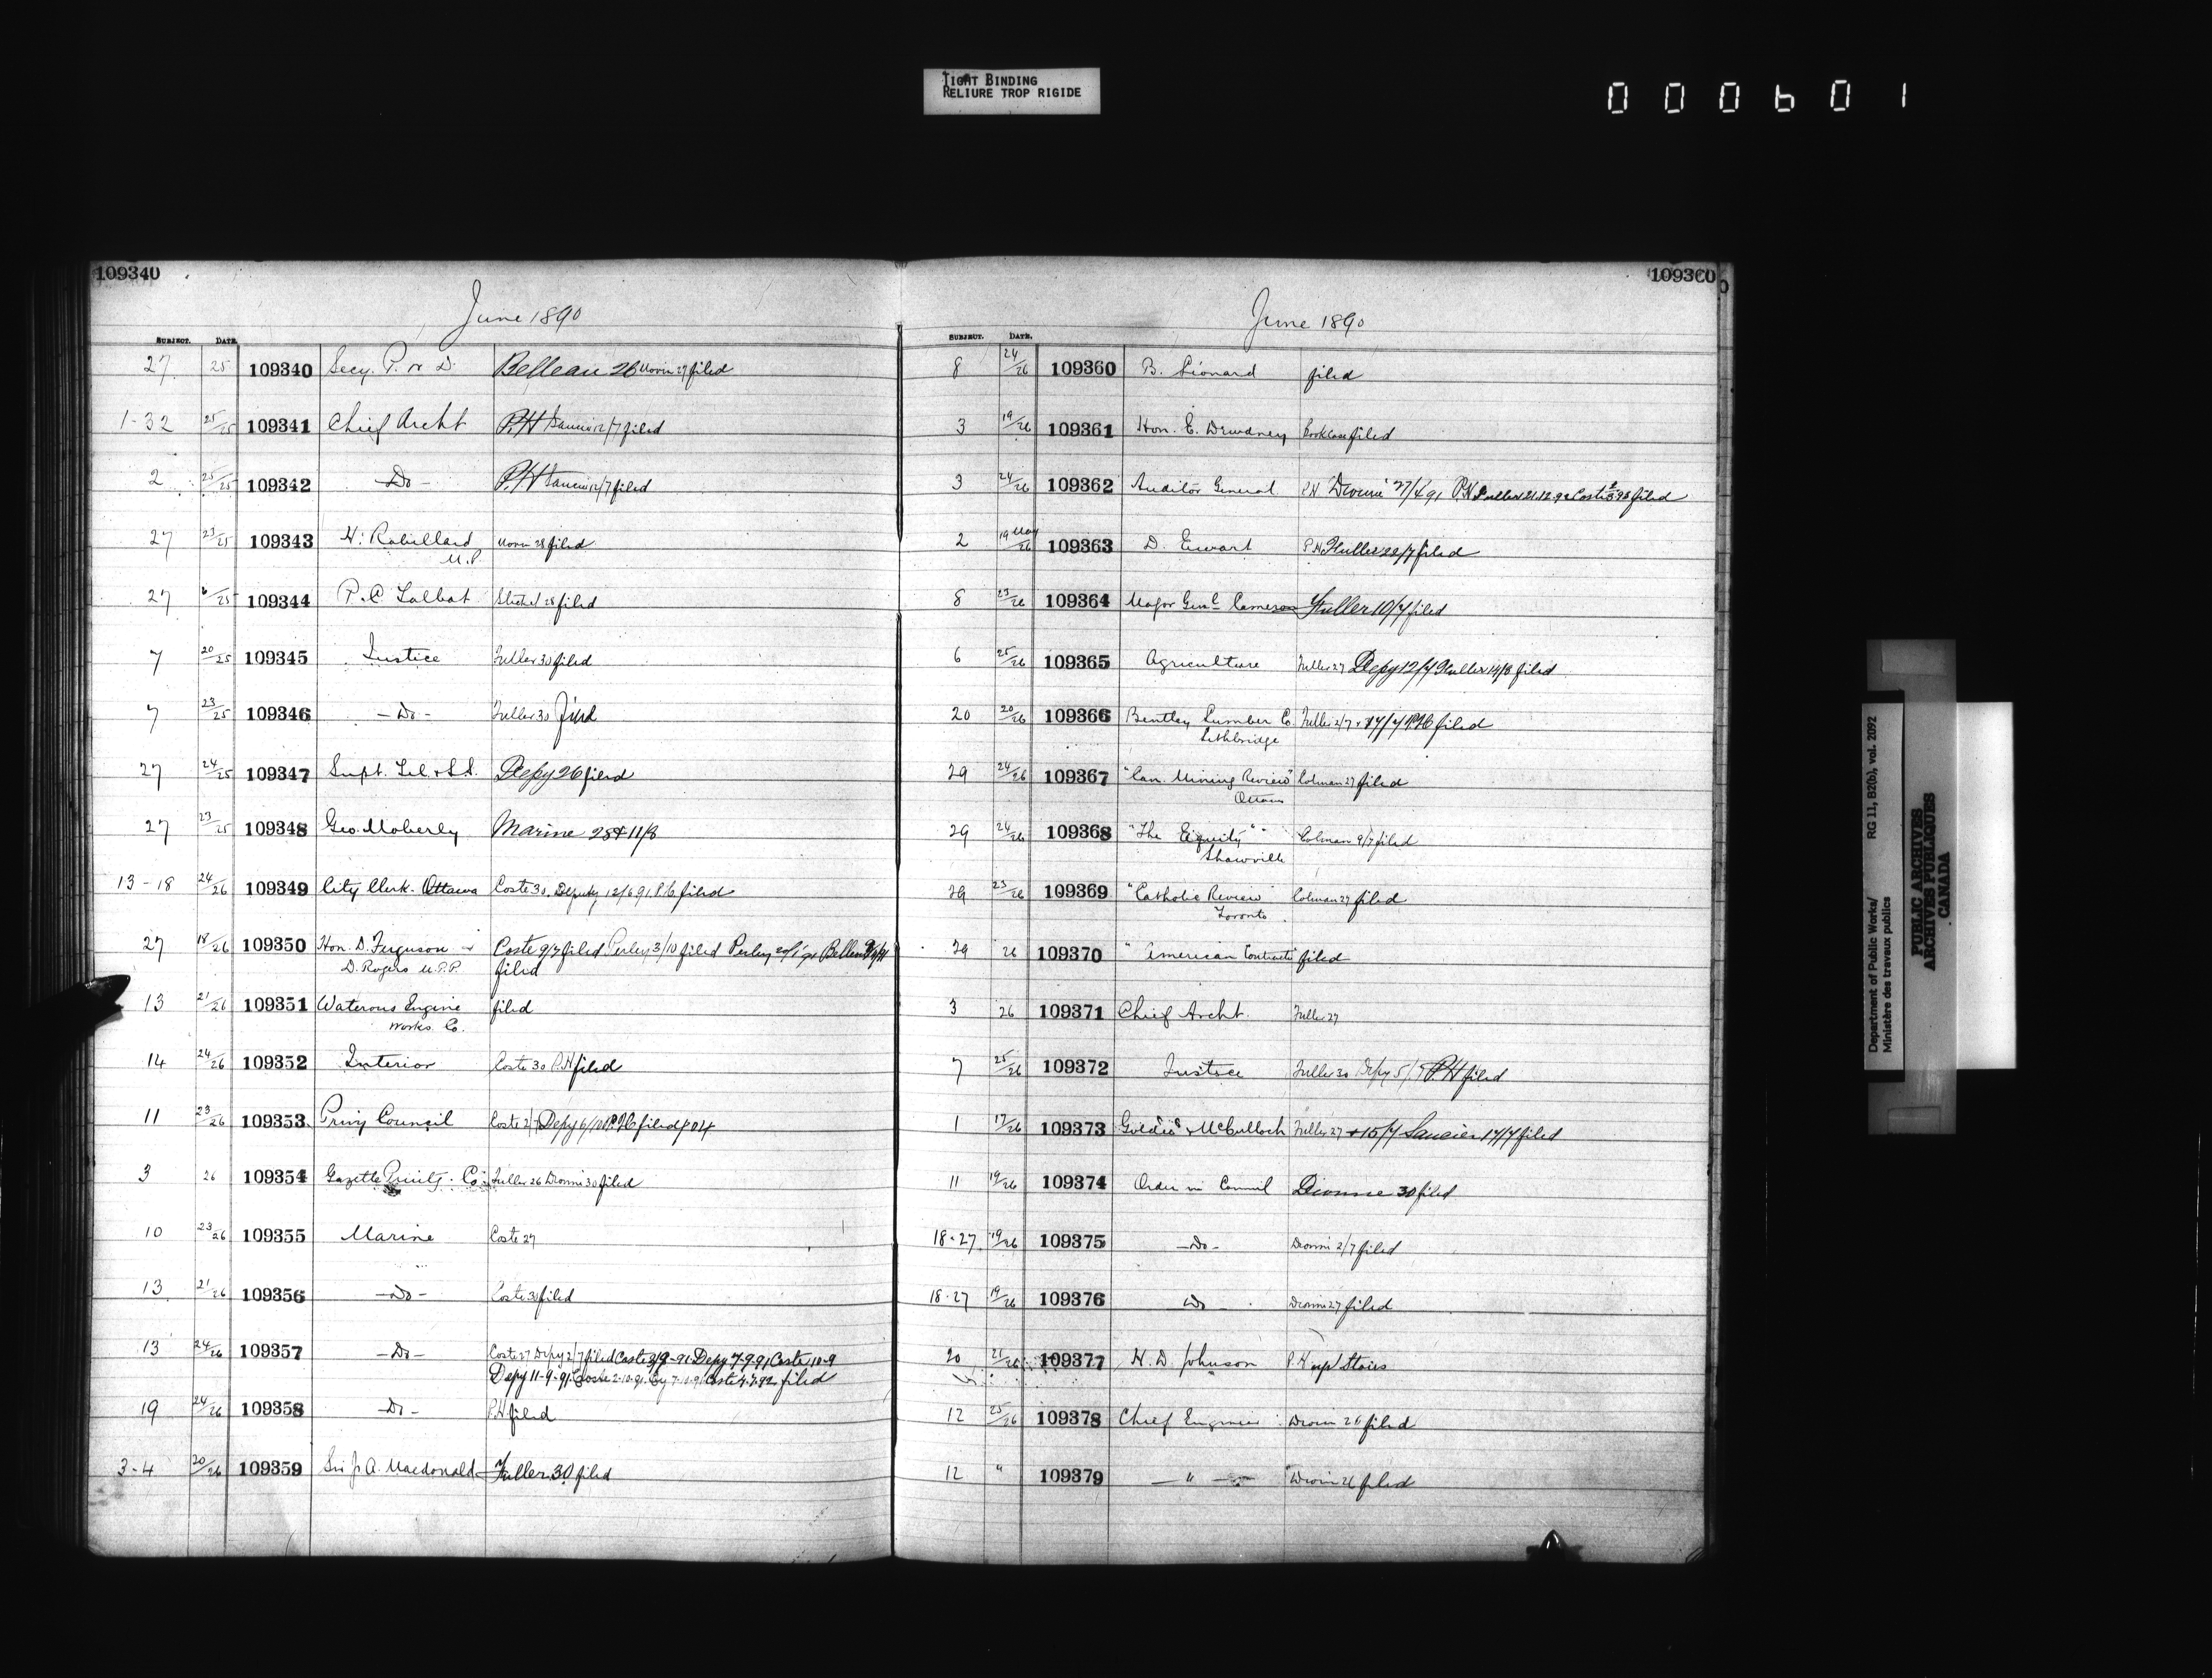 TIGHT BINDING
RELIURE TROP RIGIDE
000601
109340
June 1890
SUBJECT. DATE.
27 25 109340 Secy. P. W. D. Belleau 26 27 filed
1-32 25/25 109341 Chief Archt P.H 12/7 filed
2 25/25 109342 -Do- P.H 12/7 filed
27 23/25 109343 H. Robillard 28 filed
M.P.
27 /25 109344 P. C. Talbot 28 filed
7 20/25 109345 Justice Fuller 30 filed
7 23/25 109346 -Do- Fuller 30 filed
27 24/25 109347 Supt. Tel. & S.S. Depy 26 filed
27 23/25 109348 Geo. Moberly Marine 25 + 11/8
13-18 24/26 109349 City Clerk. Ottawa Coste 30. Deputy 12/6 91. filed
27 18/26 109350 Hon. D. Ferguson & Coste 9/7 filed Perley 3/10 filed Perley
D. Rogers M.P.P. filed
13 21/26 109351 Waterous Engine filed
Works Co.
14 24/26 109352 Interior Coste 30 P.H filed
11 23/26 109353 Privy Council Coste 2/7 Depy filed
3 26 109354 Gazette Printg. Co. Fuller 26 Dionne 30 filed
10 23/26 109355 Marine Coste 27
13 21/26 109356 -Do- Coste 30 filed
13 24/26 109357 -Do- Coste 27 Depy 2/7 filed Coste Depy 7-9-91 Coste 10-9
Depy 11-9-91 Coste 2-10-91 Coste 4.7.92 filed
19 24/26 109358 -Do- P.H filed
3-4 20/26 109359 Sir J. A. Macdonald Fuller 30 filed
109360
June 1890
SUBJECT. DATE.
8 24/26 109360 B. Léonard filed
3 19/26 109361 Hon. E. Dewdney filed
3 24/26 109362 Auditor General P.H Dionne 27/4 91 P.H Fuller 21.12.92 Coste filed
2 19 May/26 109363 D. Ewart P.H Fuller 22/7 filed
8 23/26 109364 Major Genl. Cameron Fuller 10/7 filed
6 25/26 109365 Agriculture Fuller 27 Depy 12/7 Fuller 14/8 filed
20 20/26 109366 Bentley Lumber Co. Fuller 2/7 + 17/7 filed
Lethbridge
29 24/26 109367 "Can. Mining Review" Colman 27 filed
Ottawa
29 24/26 109368 "The Equity" Colman 9/7 filed
Shawville
29 23/26 109369 "Catholic Review" Colman 27 filed
Toronto
29 26 109370 "American Contractor" filed
3 26 109371 Chief Archt. Fuller 27
7 25/26 109372 Justice Fuller 30 Depy P.H filed
1 17/26 109373 Goldie & McCulloch Fuller 27 + 15/7 Saucier 17/7 filed
11 19/26 109374 Order in Council Dionne 30 filed
18-27 19/26 109375 -Do- Dionne 2/7 filed
18-27 19/26 109376 Do - Dionne 27 filed
20 21/26 109377 H. D. Johnson P.H up Stairs
12 25/26 109378 Chief Engineer Drouin 26 filed
12 " 109379 — " — Drouin 26 filed
Department of Public Works/ RG 11, B2(b), vol. 2092
Ministère des travaux publics
PUBLIC ARCHIVES
ARCHIVES PUBLIQUES
CANADA